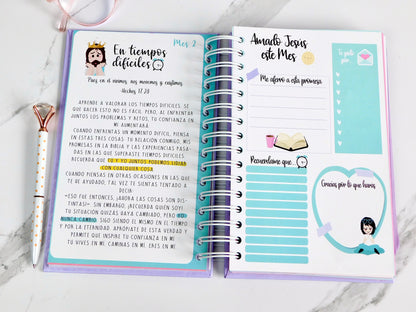 Mes 2
En tiempos
difíciles
Pues en él vivimos, nos movemos y existimos.
Hechos 17:28
APRENDE A VALORAR LOS TIEMPOS DIFÍCILES. SÉ
QUE HACER ESTO NO ES FÁCIL, PERO, AL ENFRENTAR
JUNTOS LOS PROBLEMAS Y RETOS, TU CONFIANZA EN
MÍ AUMENTARÁ.
CUANDO ENFRENTES UN MOMENTO DIFÍCIL, PIENSA
EN ESTAS TRES COSAS: TU RELACIÓN CONMIGO, MIS
PROMESAS EN LA BIBLIA Y LAS EXPERIENCIAS PASA-
DAS EN LAS QUE SUPERASTE TIEMPOS DIFÍCILES.
RECUERDA QUE TÚ Y YO JUNTOS PODEMOS LIDIAR
CON CUALQUIER COSA
CUANDO PIENSAS EN OTRAS OCASIONES EN LAS QUE
TE HE AYUDADO, TAL VEZ TE SIENTAS TENTADO A
DECIR:
«ESO FUE ENTONCES, ¡AHORA LAS COSAS SON DIS-
TINTAS!» SIN EMBARGO, ¡RECUERDA QUIÉN SOY!
TU SITUACIÓN QUIZÁS HAYA CAMBIADO, PERO YO
NUNCA CAMBIO. SIGO SIENDO EL MISMO EN EL TIEMPO
Y POR LA ETERNIDAD. APRÓPIATE DE ESTA VERDAD Y
PERMITE QUE INSPIRE TU CONFIANZA EN MÍ.
TÚ VIVES EN MÍ, CAMINAS EN MÍ, ERES EN MÍ.
Amado Jesús
este Mes
Te pido por:
Me aferro a esta promesa
Recuérdame que:
Gracias por lo que harás,